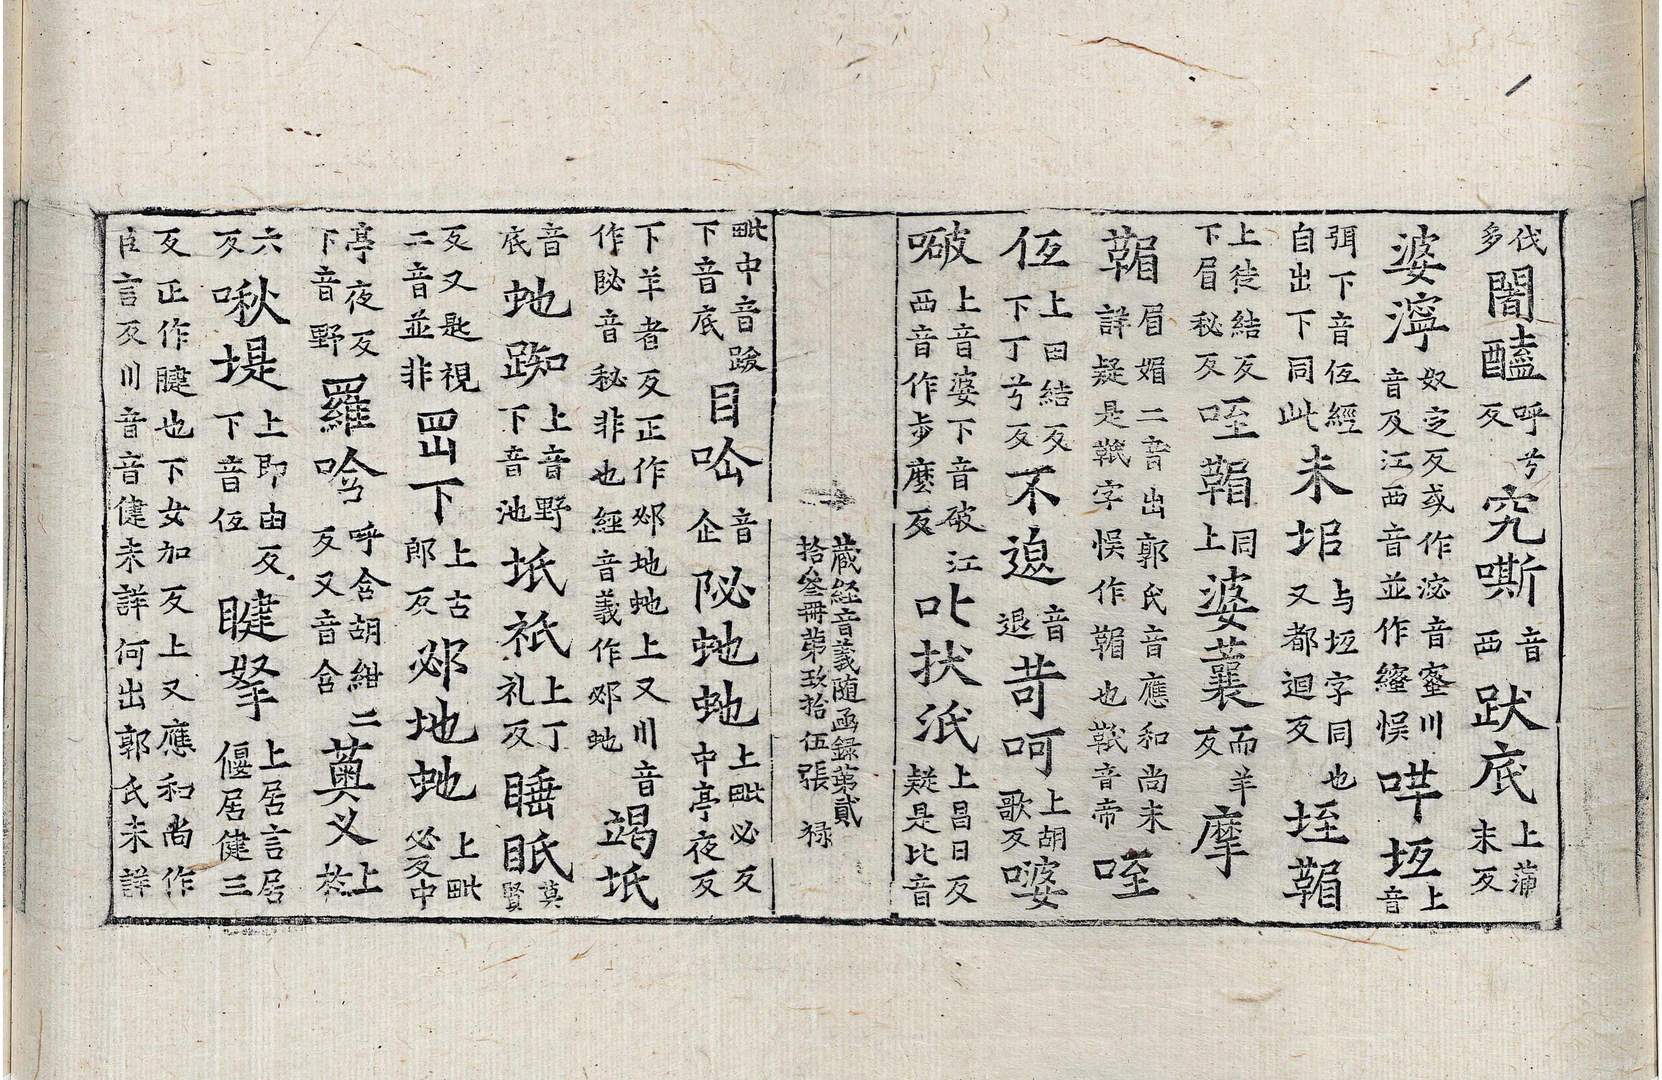 伐多闇醘呼兮反究嘶音西趺底上蒲末反
婆濘奴定反或作溢音蜜川音及江西音並作𧖅悞哶垭上音
弭下音㑉經自出下同此未㘿与垭字同也又都迴反垤鞙
上徒結反下眉秘反咥鞙同上婆蘘而羊反摩
鞙眉媚二音出郭氏音應和尚未詳疑是䩛字悞作鞙也䩛音帝咥
㑉上田結反下丁兮反不退音退苛呵上胡歌反婆
啵上音婆下音破江西音作步麼反叱挟汦上昌日反疑是比音
藏経音義随函録第貳拾叄冊第玖拾伍張 禄
毗中音跛下音底目唅音企祕虵虵上毗必反中亭夜反
下羊者反正作邲地虵上又川音作䏟音秘非也經音義作邲虵竭坁
音底虵踟上音野下音池坁祇上丁礼反睡眂莫賢
反又匙視二音並非罡下上古郎反邲地虵上毗必反中
亭夜反下音野羅唅呼含胡紺二反又音含䔳义上於
六反啾堤上即由反下音㑉睷拏上居言居偃居健三
反正作腱也下女加反上又應和尚作臣言反川音音健未詳何出郭氏未詳